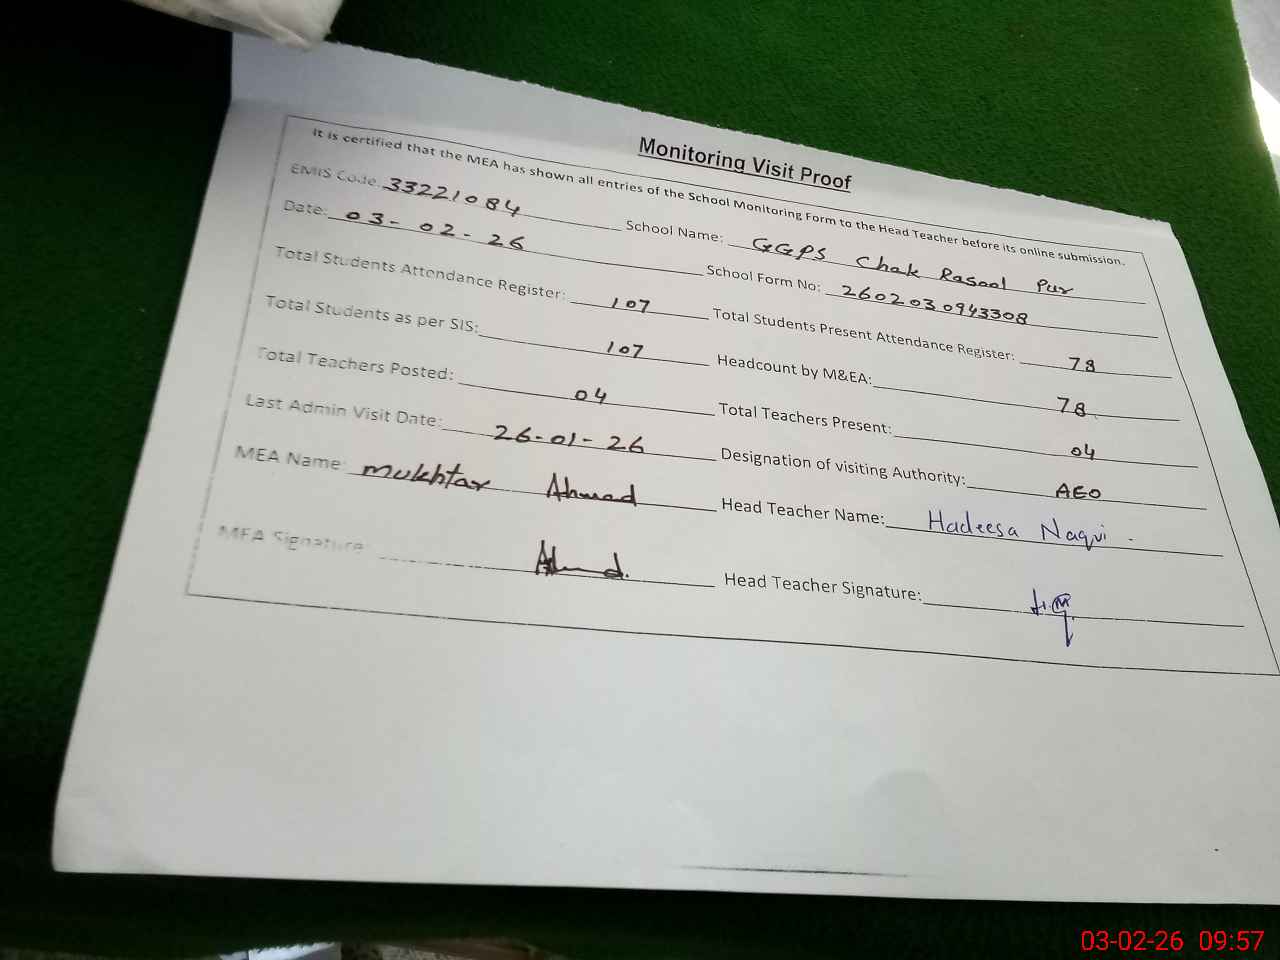 Monitoring Visit Proof
It is certified that the MEA has shown all entries of the School Monitoring Form to the Head Teacher before its online submission.
EMIS Code 33221084 School Name: GGPS Chak Rasool Pur
Date: 03-02-26 School Form No: 2602030943308
Total Students Attendance Register: 107 Total Students Present Attendance Register: 78
Total Students as per SIS: 107 Headcount by M&EA: 78
Total Teachers Posted: 04 Total Teachers Present: 04
Last Admin Visit Date: 26-01-26 Designation of visiting Authority: AEO
MEA Name: Mukhtar Ahmad Head Teacher Name: Hadeesa Naqvi
MEA Signature: Ahmd. Head Teacher Signature:
03-02-26 09:57